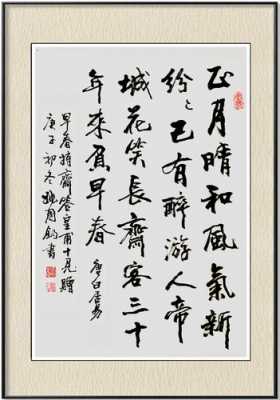 正月晴和風氣新
紛〻已有醉游人帝
城花笑長齋客三十
年來負早春 唐白居易
早春持齋答皇甫十見贈
庚子初冬
書